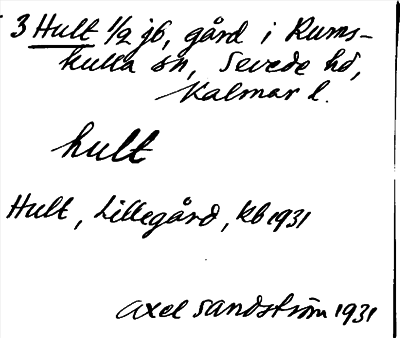 3 Hult 1/2 jb, gård i Rums-
kulla sn, Sevede hd,
Kalmar l.
hult
Hult, Lillegård, kb 1931
Axel Sandström 1931